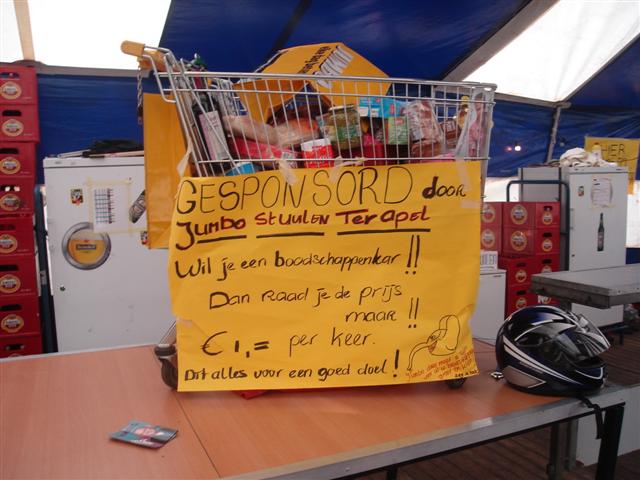 GESPONSORD door
Jumbo Stuulen Ter Apel
Wil je een boodschappenkar !!
Dan raad je de prijs
maar !!
€ 1,= per keer.
Dit alles voor een goed doel !
HIER